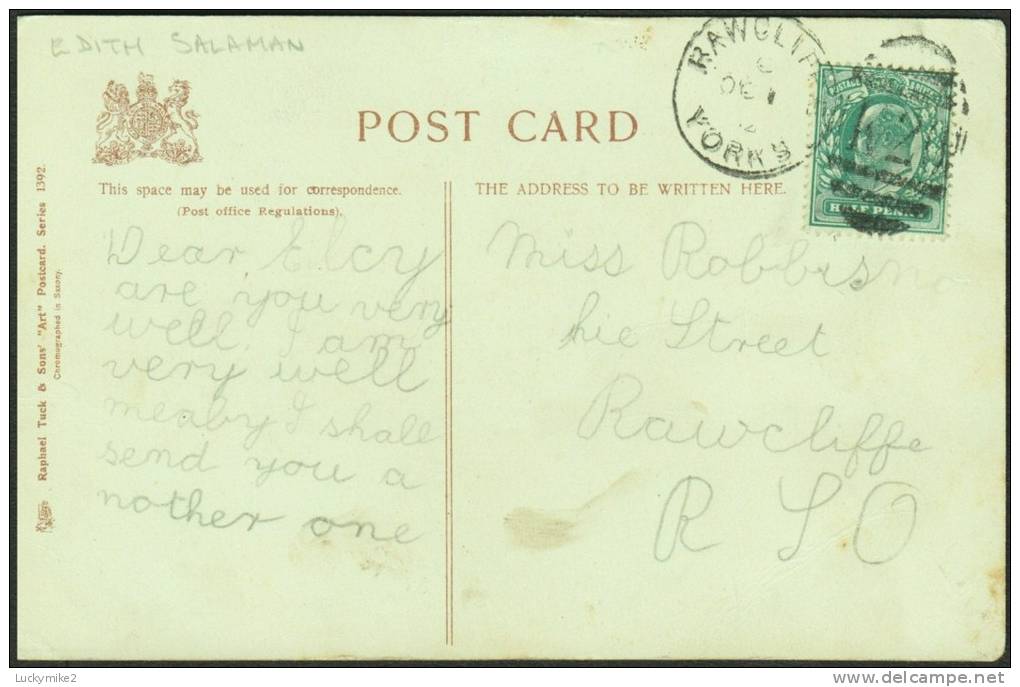 EDITH SALAMAN
POST CARD
This space may be used for correspondence.
(Post office Regulations).
THE ADDRESS TO BE WRITTEN HERE.
Raphael Tuck & Sons' "Art" Postcard. Series 1392.
Chromographed in Saxony.
RAWCLIF
OC 1
YORKS
POSTAGE
HALF PENNY
Dear Elcy
are you very
well. I am
very well
meaby I shall
send you a
nother one
Miss Robbisno
hie Street
Rawcliffe
R S O
Luckymike2
www.delcampe.net